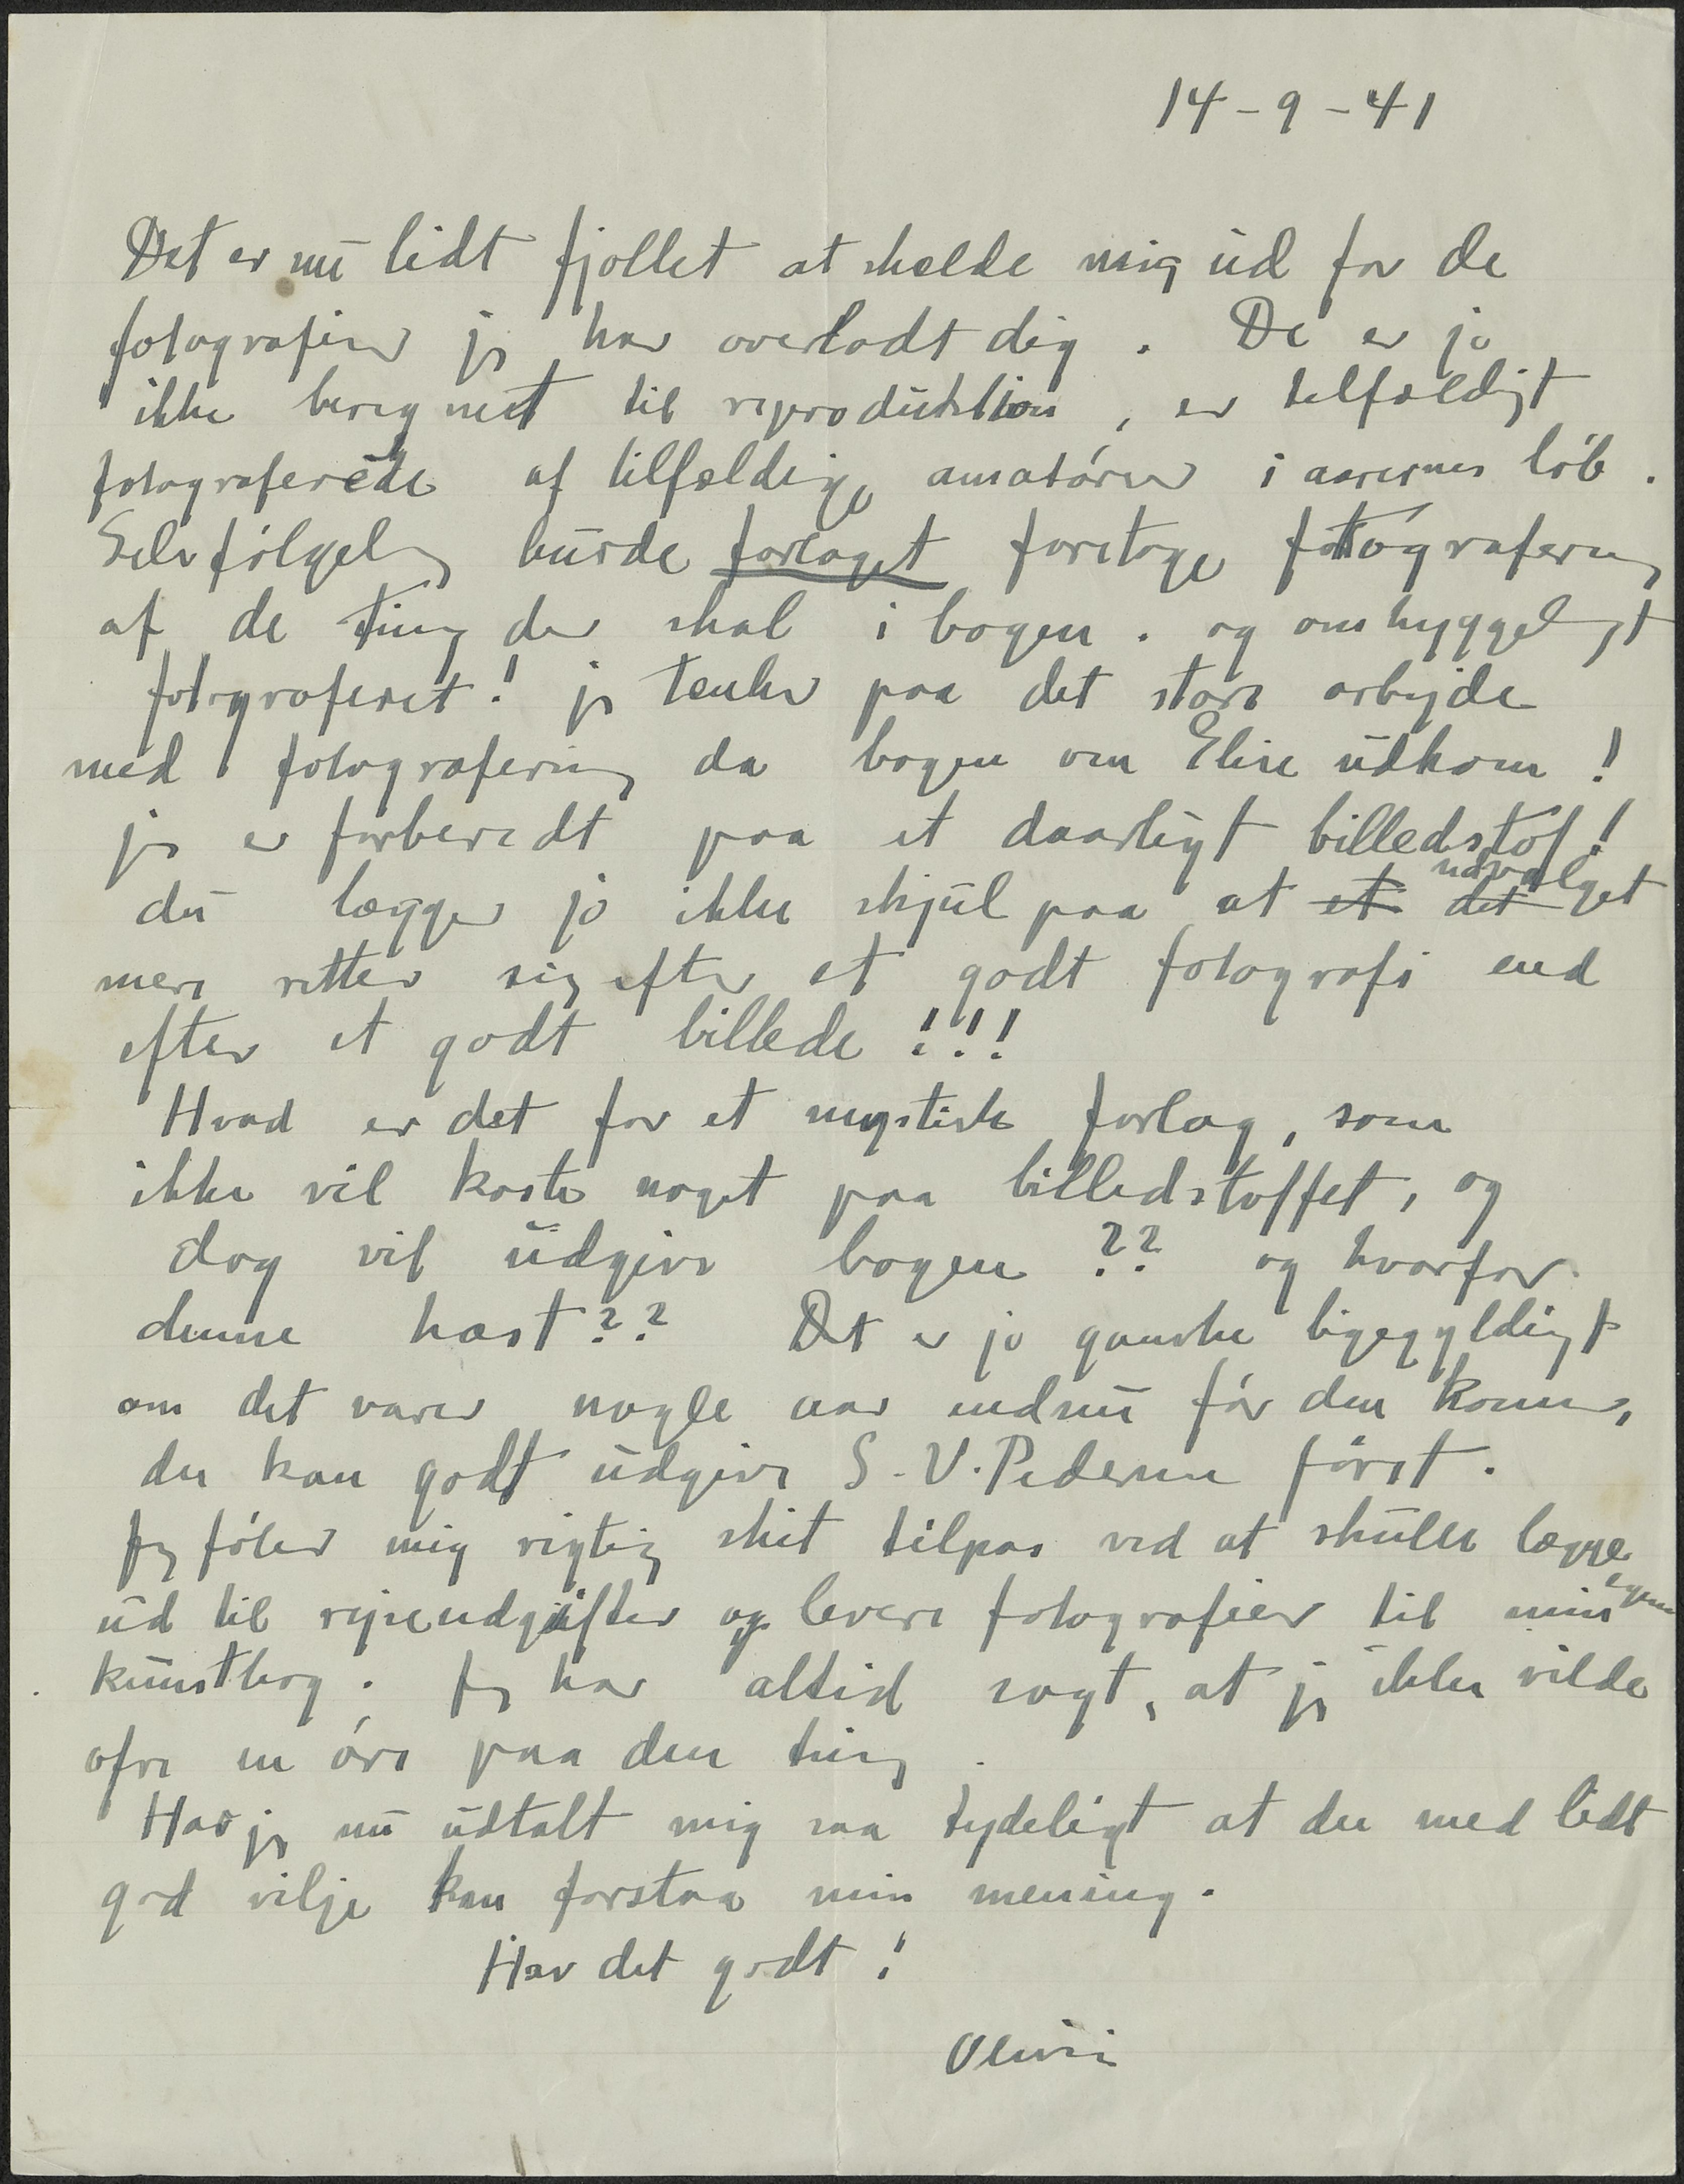 14-9-41
Det er nu lidt fjollet at skælde mig ud for de
fotografier jeg har overladt dig. De er jo
ikke beregnet til reproduktion, er tilfældigt
fotograferede af tilfældige amatører i aarenes løb.
Selvfølgelig burde forlaget foretage fotografering
af de ting der skal i bogen. og omhyggeligt
fotograferet! jeg tænker paa det store arbejde
med fotografering da bogen om Elise udkom!
jeg er forberedt paa et daarligt billedstof!
du lægger jo ikke skjul paa at et det udvalget
mere retter sig efter et godt fotografi end
efter et godt billede!!!
Hvad er det for et mystisk forlag, som
ikke vil koste noget paa billedstoffet, og
dog vil udgive bogen?? og hvorfor
denne hast?? Det er jo ganske ligegyldigt
om det varer nogle aar endnu før den kommer,
du kan godt udgive S.V. Pedersen først.
Jeg føler mig rigtig skit tilpas ved at skulle lægge
ud til rejseudgifter og levere fotografier til min egen
kunstbog. Jeg har altid sagt, at jeg ikke vilde
ofre en øre paa den ting.
Har jeg nu udtalt mig saa tydeligt at du med lidt
god vilje kan forstaa min mening.
Hav det godt!